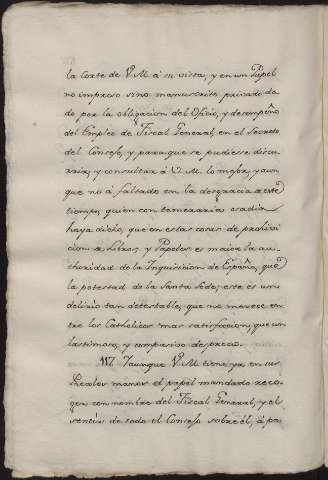 la Corte de V. M. à su vista, y en un Papel
no impreso sino manuscrito privado da
do por la obligacion del Oficio, y desempeño
del Empleo de Fiscal General, en el Secreto
del Consejo, y para que se pudiese discu
rrir, y consultar à V. M. lo mejor, y aun
que no à faltado en la desgracia de este
tiempo, quien con temeraria osadia
haya dicho, que en estas cosas de prohivi
cion de Libros, y Papeles es maior la au
thoridad de la Inquisicion de España, que
la potestad de la Santa Sede; este es un
delirio tan detestable, que no merece en
tre los Catholicos mas satisfaccion, que un
lastimoso, y compasivo desprecio.
117 Y aunque V. M. tiene ya en sus
Reales manos el papel mandado reco
ger con nombre del Fiscal General, y el
sentir de todo el Consejo sobre él, à pa